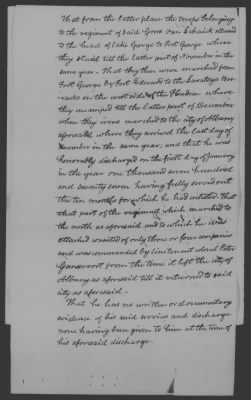 That from the latter place the troops belonging
to the regiment of said Gose Van Schaick retired
to the head of Lake George to Fort George where
they staid till the latter part of November in the
same year. That they then were marched from
Fort George by Fort Edward to the Saratoga Bar-
racks on the west side of the Hudson where
they encamped till the latter part of December
when they were marched to the city of Albany
aforesaid where they arrived the last day of
December in the same year; and that he was
honorably discharged on the first day of January
in the year one thousand seven hundred
and seventy seven having fully served out
the ten months for which he had enlisted. That
that part of the regiment which marched to
the north as aforesaid and to which he was
attached consisted of only three or four companies
and was commanded by lieutenant colonel Peter
Gansevoort from the time it left the city of
Albany as aforesaid till it returned to said
city as aforesaid.
That he has no written or documentary
evidence of his said service and discharge
none having been given to him at the time of
his aforesaid discharge.